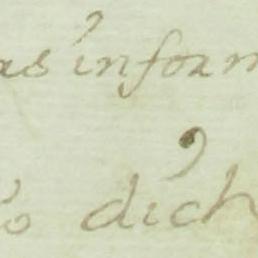 as inform
o dich